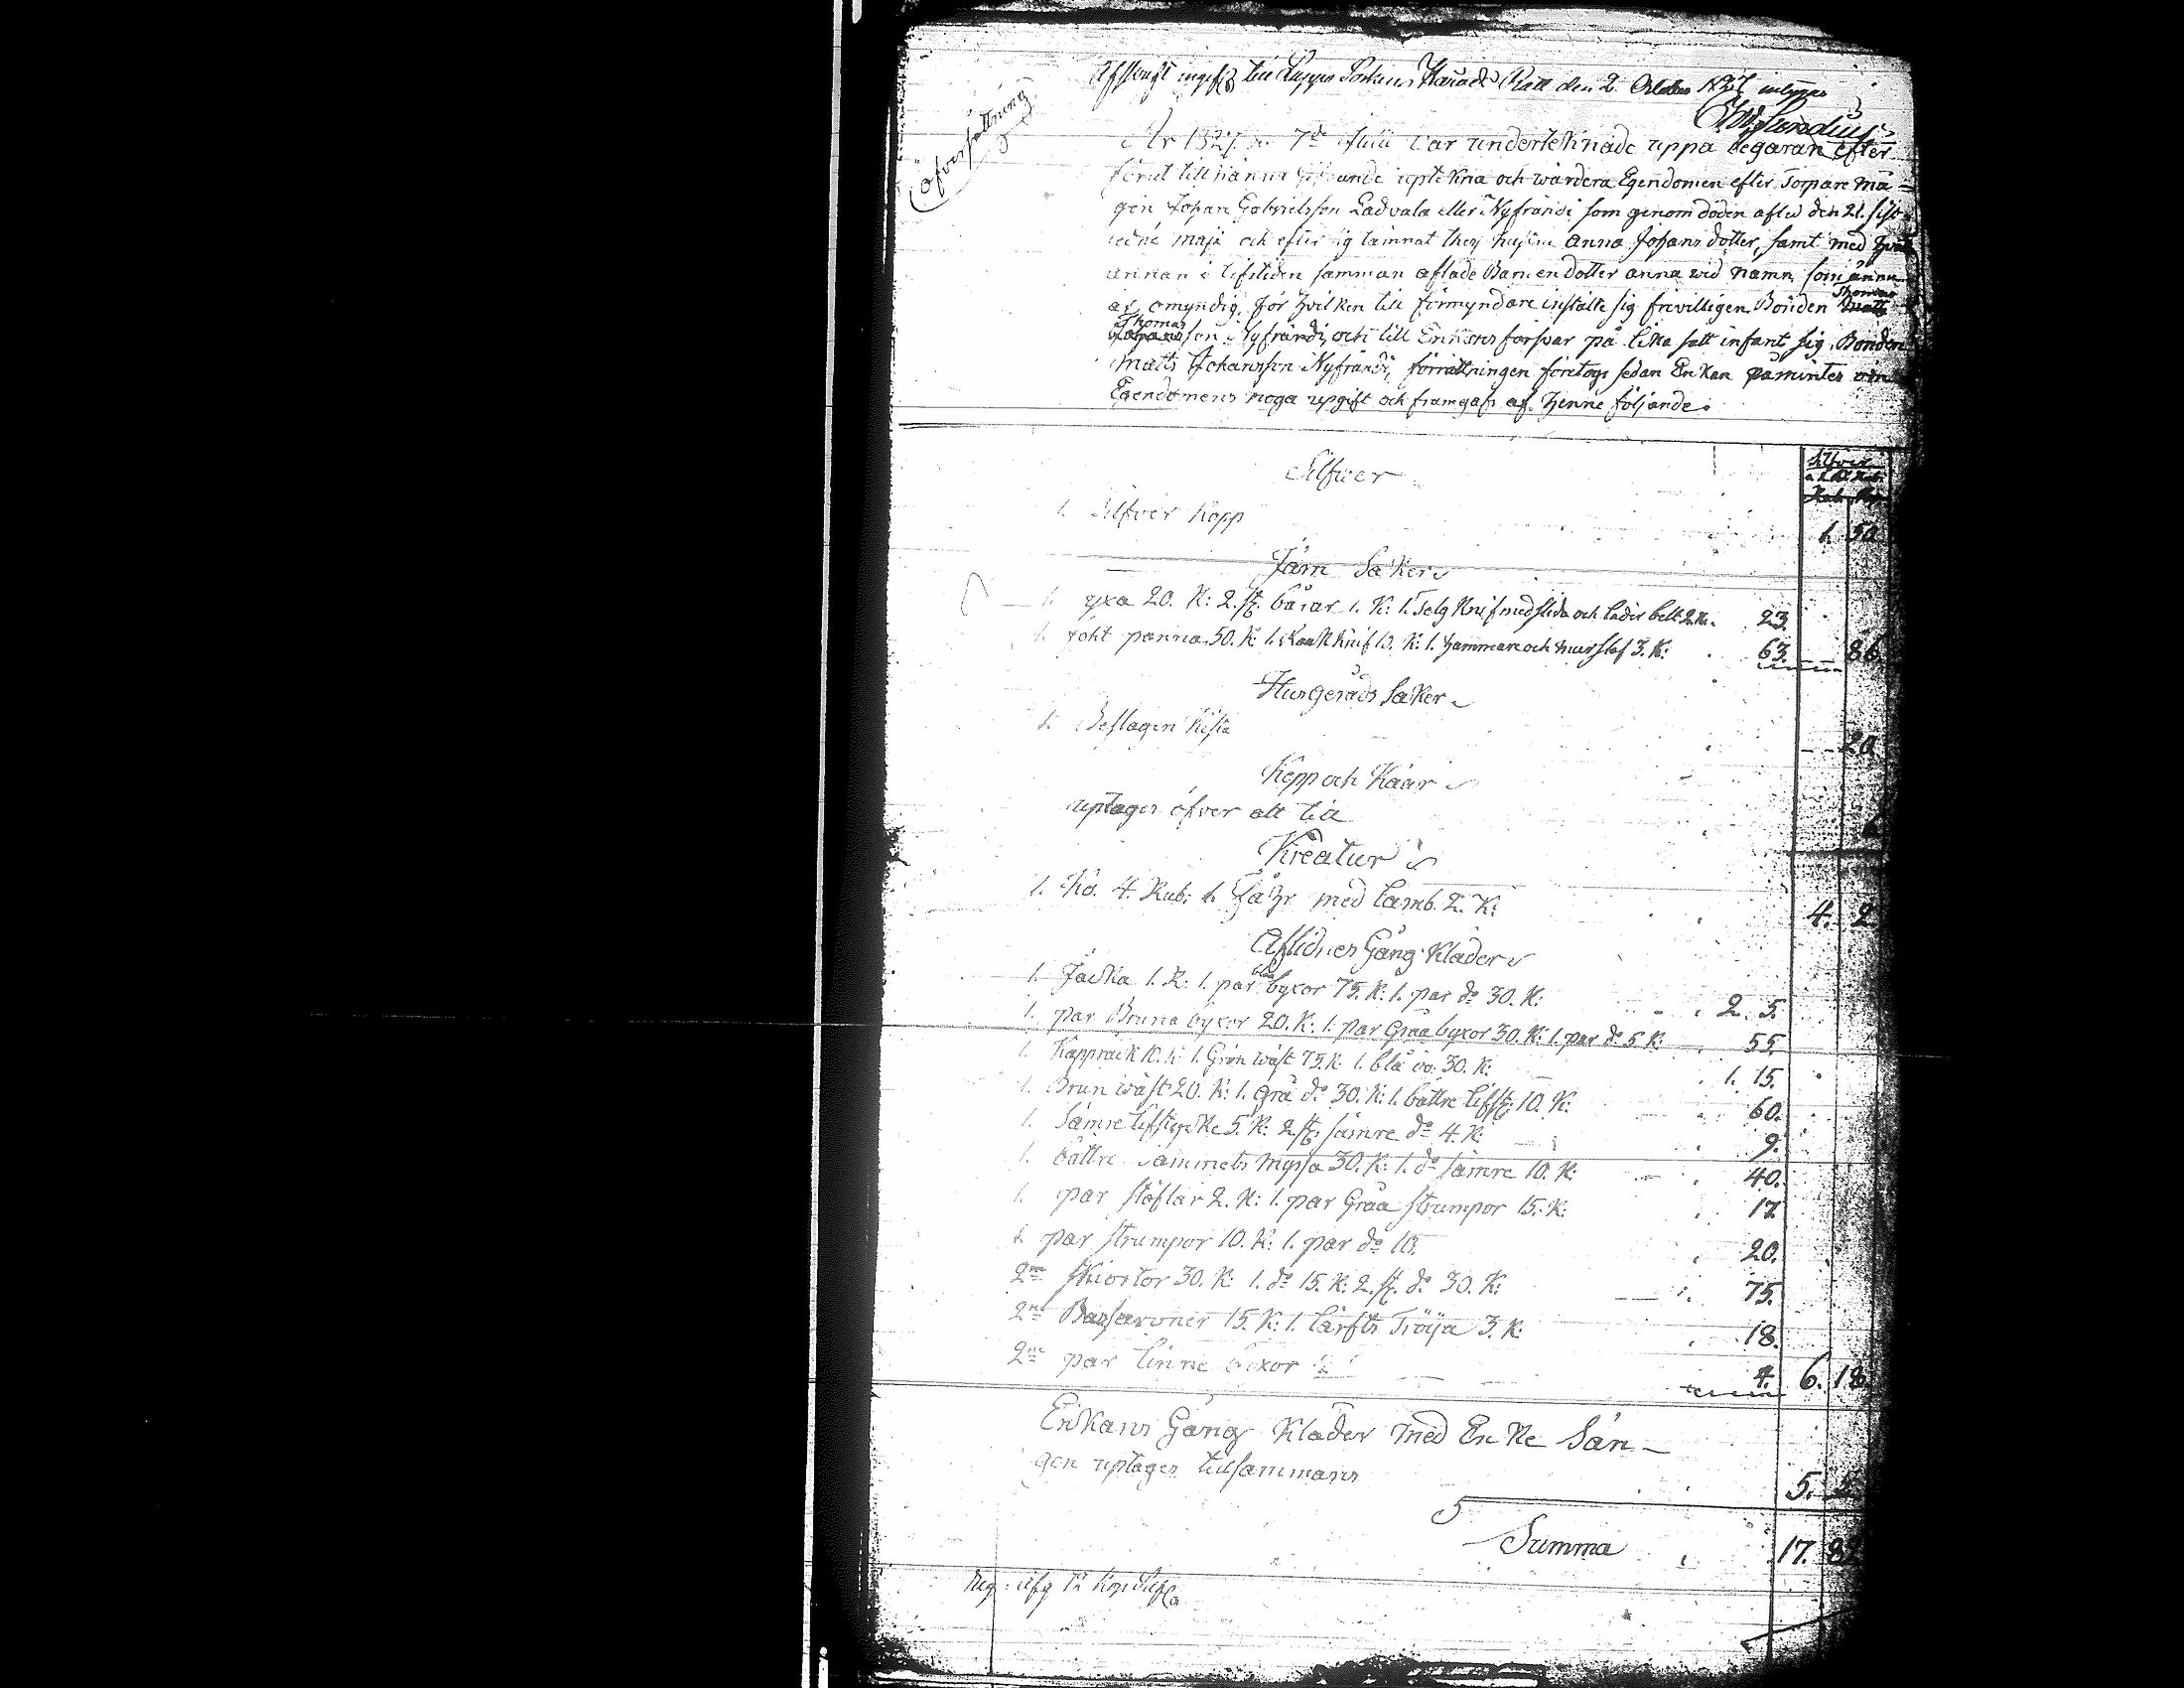 Afskrift ingifv. till Lappo Sockens Härads Rätt den 2. October 1827 intygar
Öfversättning
År 1827 den 7de Julii var undertecknade uppå begäran efter
förut till hanna gifvande uptekna och wärdera Egendomen efter Torpare må-
gen Johan Gabrielsson Ladvala eller Nyfrändi som genom döden afled den 21. sist-
ledne maji och efter sig lämnat thess hustru Anna Johansdotter, samt med hvar
annan i lifstiden samman aflade Barn en dotter anna vid namn som ännu
är omyndig, för hvilken till förmyndare instälte sig frivilligen Bonden Thomas
Thomasson Nyfrändi, och till Enkans försvar på lika sätt infant sig Bonden
Matts Johansson Nyfrändi, förrättningen företogs sedan Enkan påmintes om
Egendomens noga upgift och framgafs af henne följande.
Silfwer
Silfver
a R. Rub:
Rub. Kop.
1. Silfver Kopp 1. 50
Järn Saker
1. yxa 20. K: 2. st. bårar 1. K: 1. Telg Knif med slida och läder belt 2 K. 23.
1. jökt panna 50. K: 1. Raak Knif 10. K: 1. hammare och murslef 3. K: 63. 86.
Husgeråds Saker
1. Beslagen Kista 20
Käpp och Käär
uptages öfver alt till 6
Kreatur
1. Ko. 4. Rub: 1. Fåhr med lamb. 2. K: 4. 2
Aflidnes Gång Kläder
1. Jacka 1. R: 1. par blåa byxor 75. K: 1. par do 30. K: 2. 5.
1. par Bruna byxor 20. K: 1. par Gråa byxor 30. K: 1. par do 5 K: 55.
1. Kappråck 10. K: 1. Grön wäst 75. K: 1. blå do 30. K: 1. 15.
1. Brun wäst 20. K: 1. grå do 30. K: 1. bättre lifst: 10. K: 60.
1. Sämre lifstycke 5. K: 2. st. sämre do 4. K: 9.
1. bättre Sammets myssa 30. K: 1. do sämre 10. K: 40.
1. par stöflar 2. K: 1. par Gråa strumpor 15. K: 17
1. par strumpor 10. K: 1. par do 10. 20.
2ne skiortor 30. K: 1. do 15. K: 2. st. do 30. K: 75.
2ne Barsaroner 15. K: 1. lärfts Tröija 3. K: 18.
2ne par linne byxor 4. 6. 18
Enkans Gång Kläder med Enke Sän-
gen uptages tillsammans 5.
Summa 17. 8